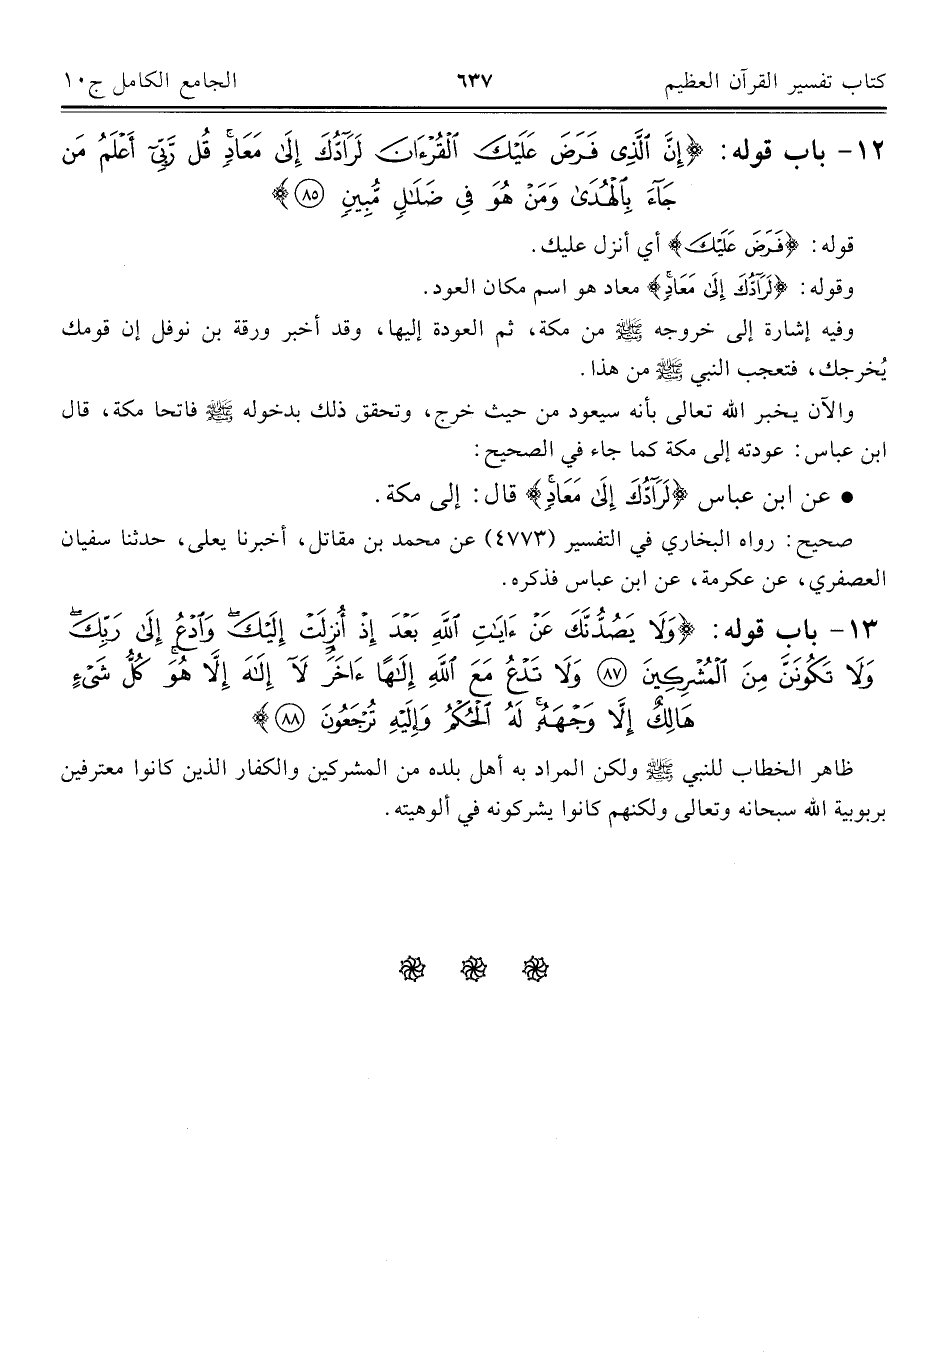 كتاب تفسير القرآن العظيم ٦٣٧ الجامع الكامل ج١٠
١٢- باب قوله: ﴿إِنَّ ٱلَّذِى فَرَضَ عَلَيْكَ ٱلْقُرْءَانَ لَرَآدُّكَ إِلَىٰ مَعَادٍۢ ۚ قُل رَّبِّىٓ أَعْلَمُ مَن
جَآءَ بِٱلْهُدَىٰ وَمَنْ هُوَ فِى ضَلَـٰلٍۢ مُّبِينٍۢ ٨٥﴾
قوله: ﴿فَرَضَ عَلَيْكَ﴾ أي أنزل عليك.
وقوله: ﴿لَرَآدُّكَ إِلَىٰ مَعَادٍۢ ۚ﴾ معاد هو اسم مكان العود.
وفيه إشارة إلى خروجه ﷺ من مكة، ثم العودة إليها، وقد أخبر ورقة بن نوفل إن قومك
يُخرجك، فتعجب النبي ﷺ من هذا.
والآن يخبر الله تعالى بأنه سيعود من حيث خرج، وتحقق ذلك بدخوله ﷺ فاتحا مكة، قال
ابن عباس: عودته إلى مكة كما جاء في الصحيح:
• عن ابن عباس ﴿لَرَآدُّكَ إِلَىٰ مَعَادٍۢ ۚ﴾ قال: إلى مكة.
صحيح: رواه البخاري في التفسير (٤٧٧٣) عن محمد بن مقاتل، أخبرنا يعلى، حدثنا سفيان
العصفري، عن عكرمة، عن ابن عباس فذكره.
١٣- باب قوله: ﴿وَلَا يَصُدُّنَّكَ عَنْ ءَايَـٰتِ ٱللَّهِ بَعْدَ إِذْ أُنزِلَتْ إِلَيْكَ ۖ وَٱدْعُ إِلَىٰ رَبِّكَ ۖ
وَلَا تَكُونَنَّ مِنَ ٱلْمُشْرِكِينَ ٨٧ وَلَا تَدْعُ مَعَ ٱللَّهِ إِلَـٰهًا ءَاخَرَ ۘ لَآ إِلَـٰهَ إِلَّا هُوَ ۚ كُلُّ شَىْءٍ
هَالِكٌ إِلَّا وَجْهَهُۥ ۚ لَهُ ٱلْحُكْمُ وَإِلَيْهِ تُرْجَعُونَ ٨٨﴾
ظاهر الخطاب للنبي ﷺ ولكن المراد به أهل بلده من المشركين والكفار الذين كانوا معترفين
بربوبية الله سبحانه وتعالى ولكنهم كانوا يشركونه في ألوهيته.